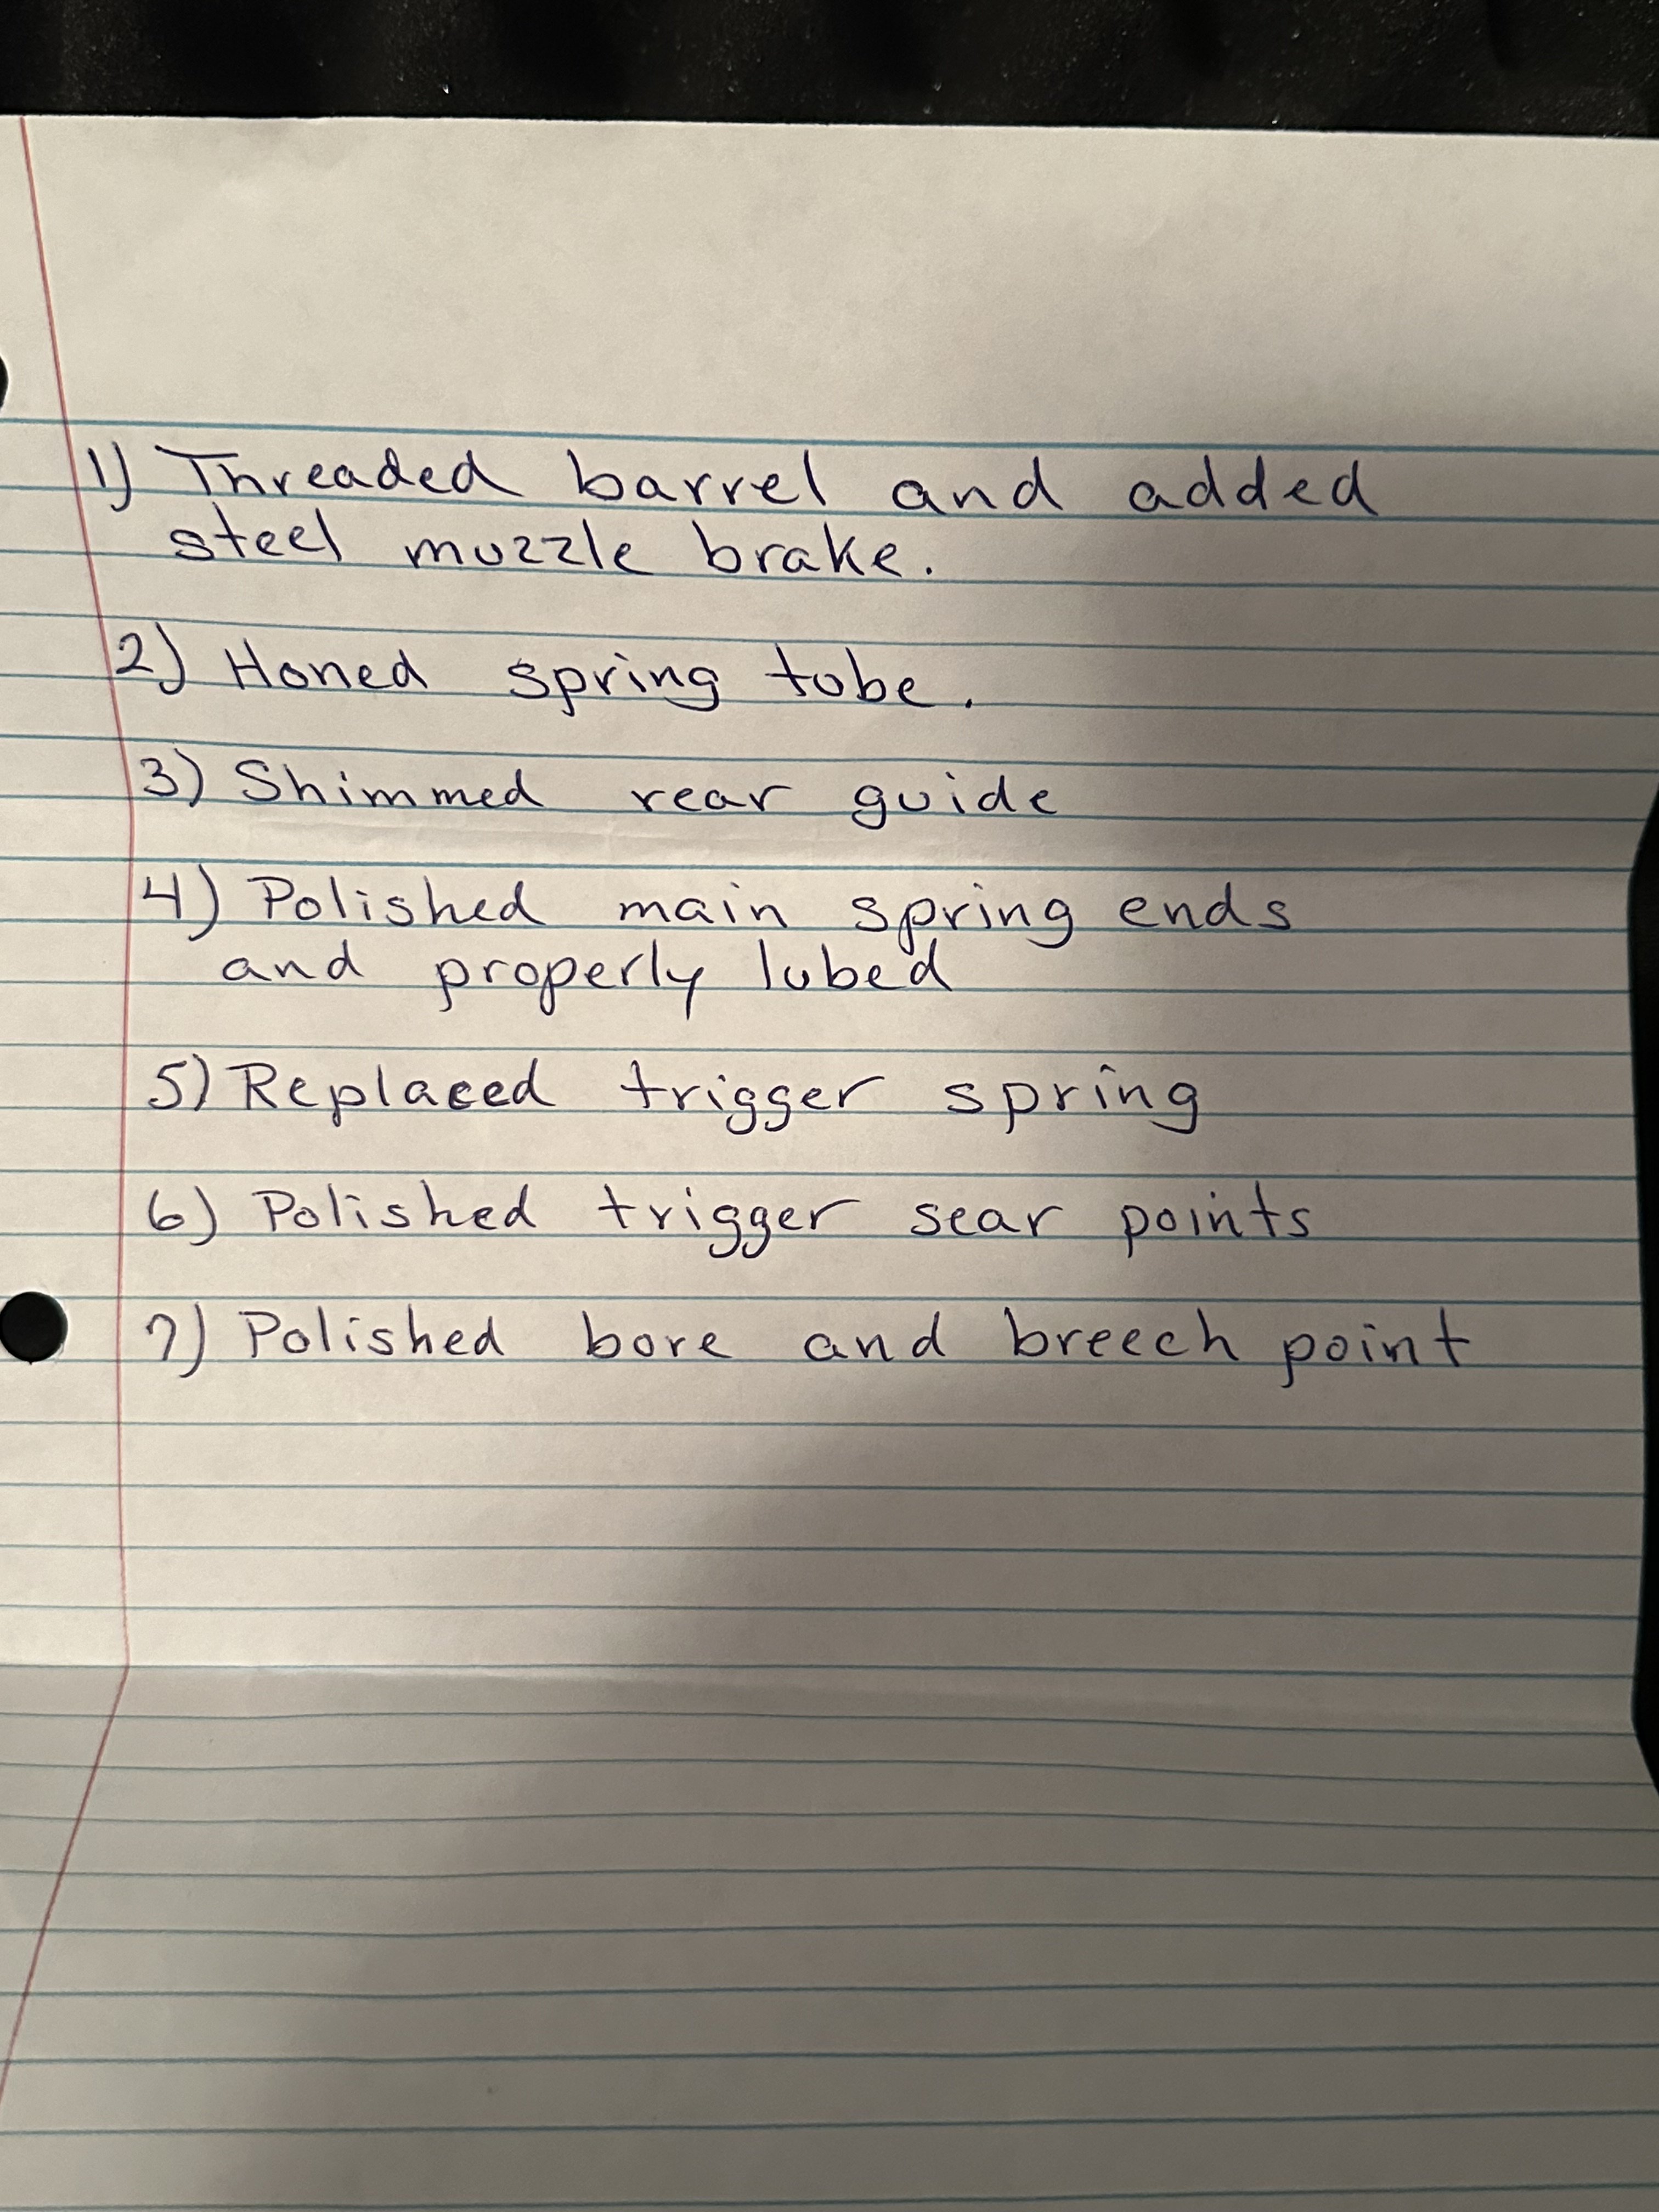 1) Threaded barrel and added
steel muzzle brake.
2) Honed spring tube.
3) Shimmed rear guide
4) Polished main spring ends
and properly lubed
5) Replaced trigger spring
6) Polished trigger sear points
7) Polished bore and breech point